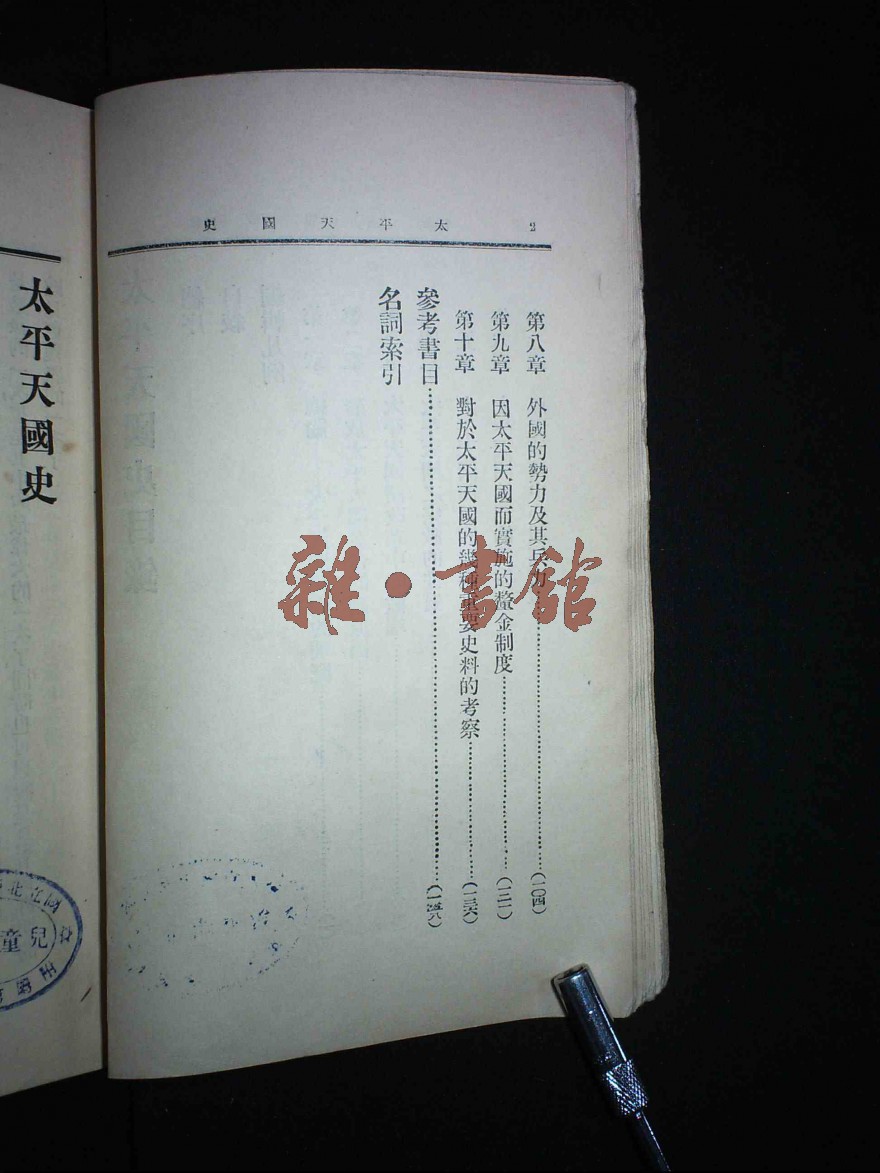 太平天國史 2
第八章 外國的勢力及其兵力……(一〇四)
第九章 因太平天國而實施的釐金制度……(一二一)
第十章 對於太平天國的幾種重要史料的考察……(一三六)
參考書目……(一五八)
名詞索引
太平天國史
國立北
兒童
雜·書館